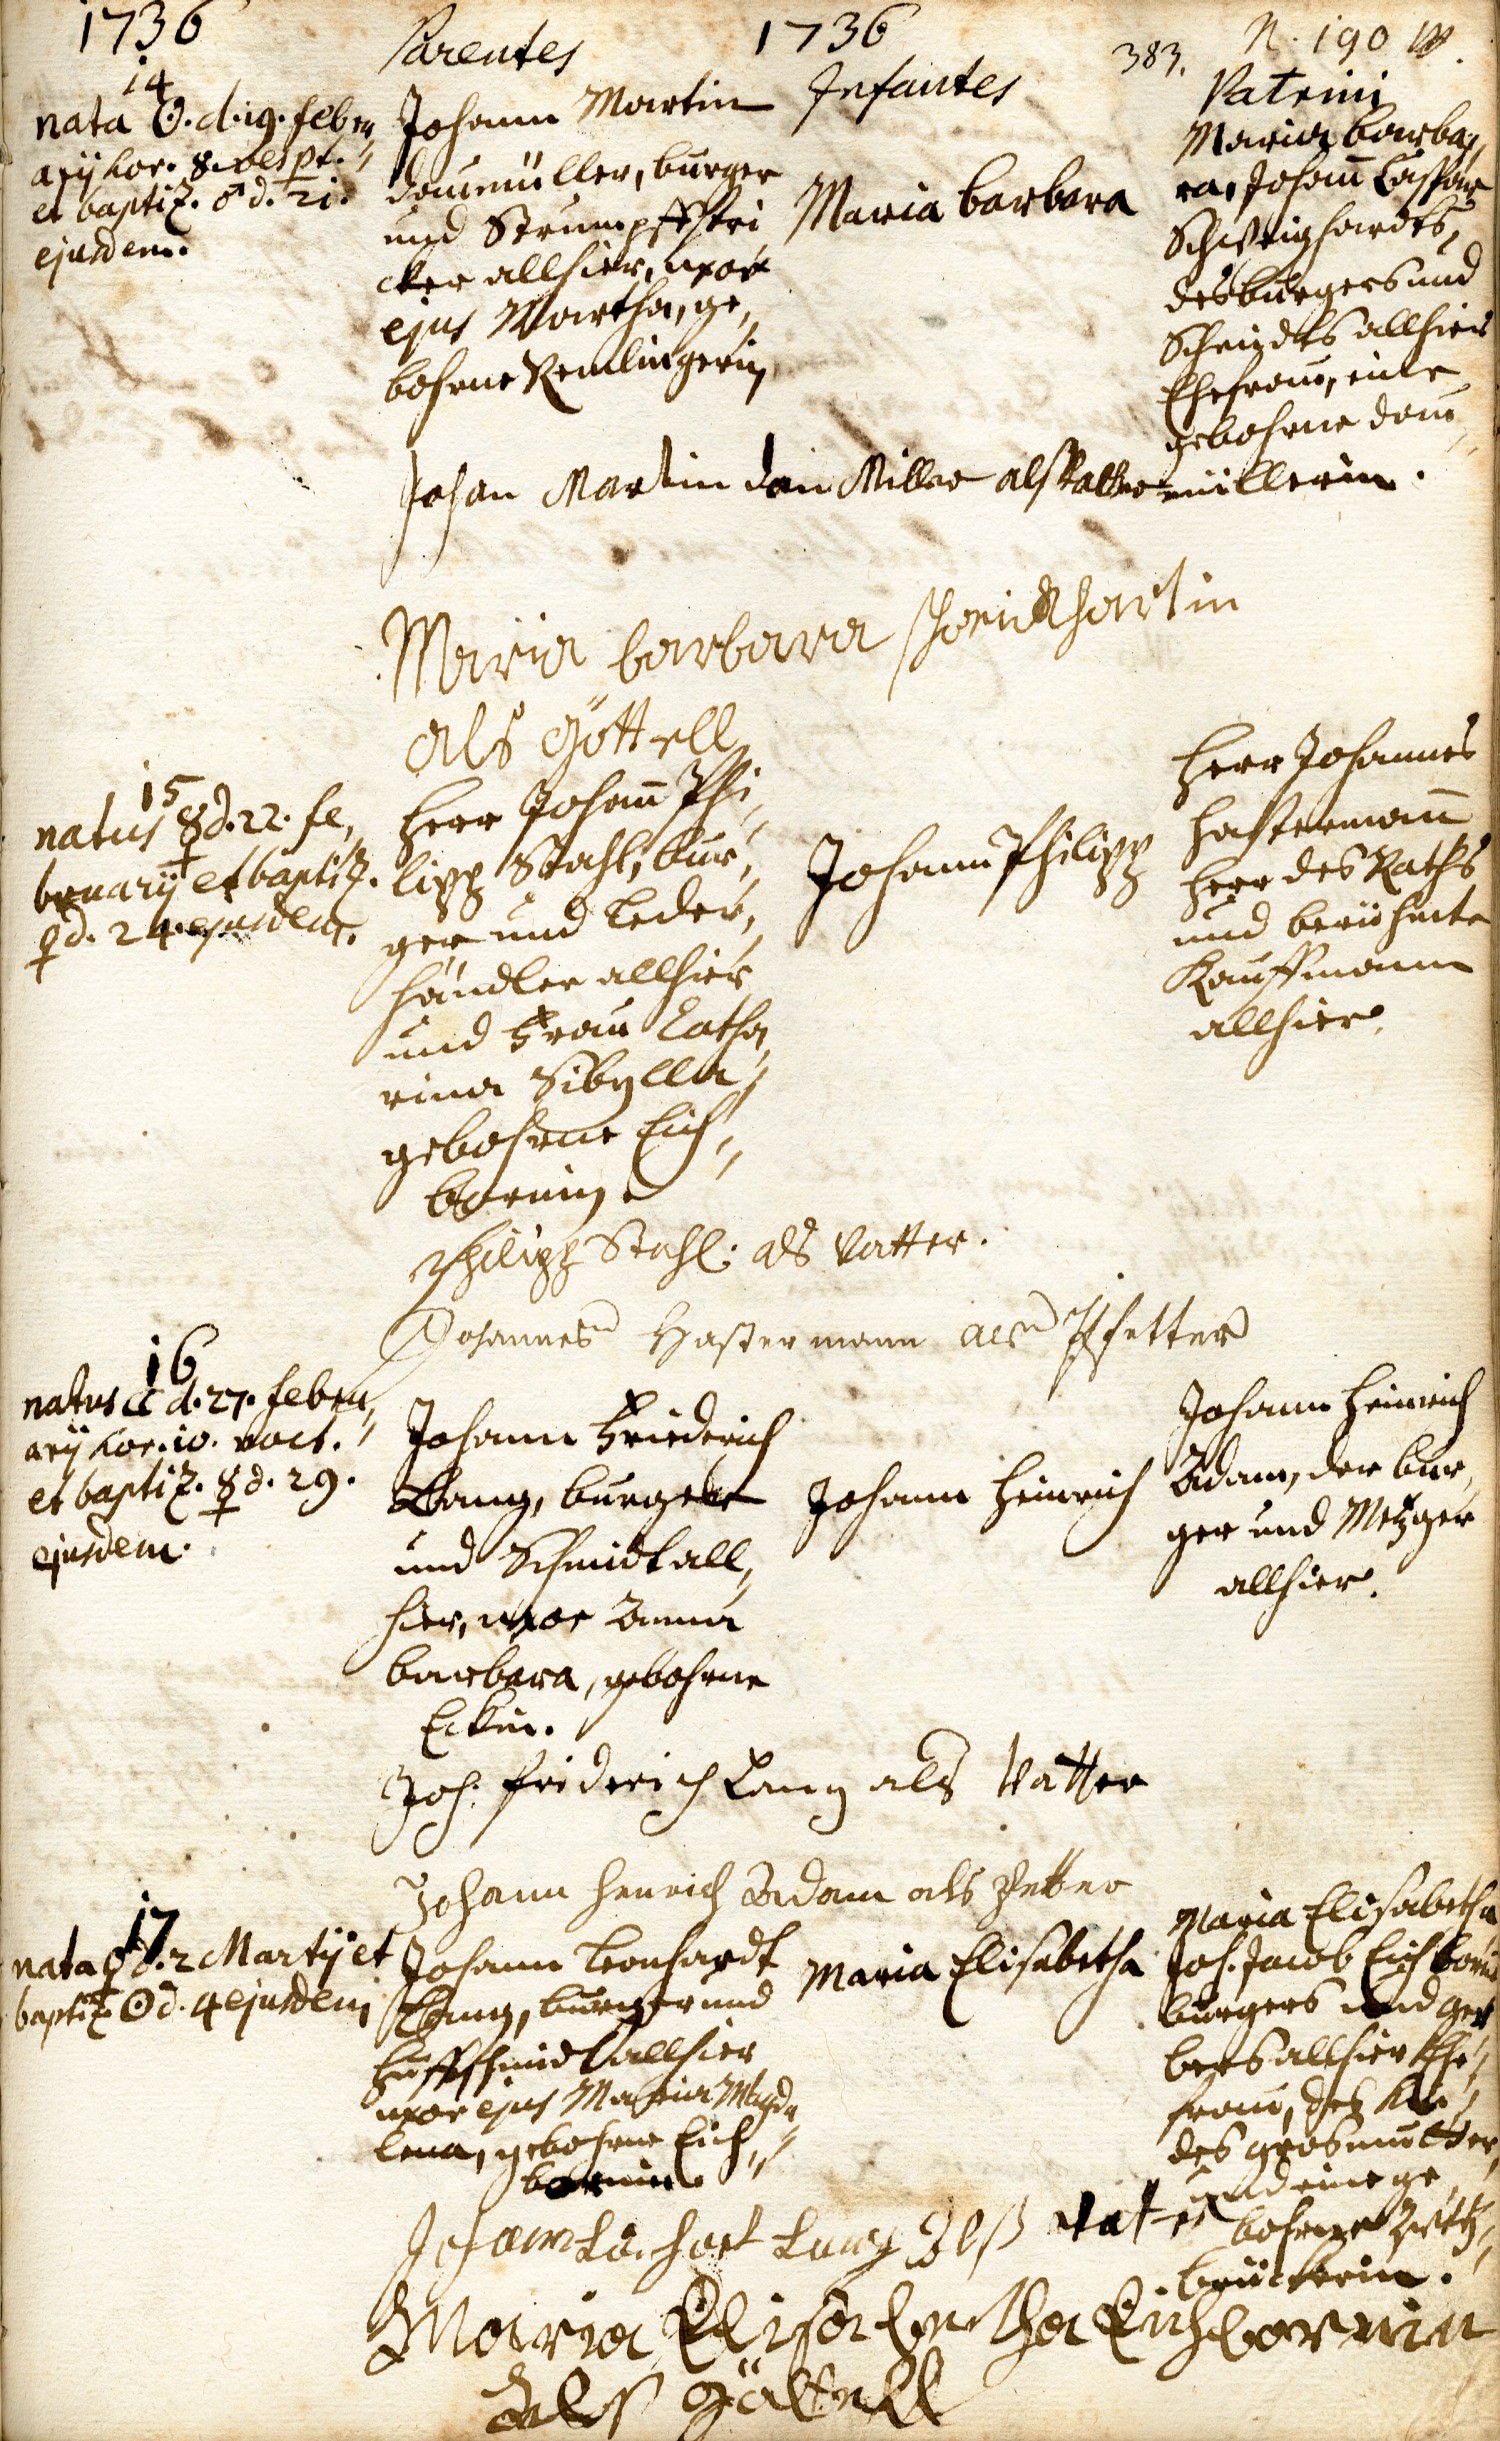 1736
Parentes
1736
Infantes
383.
N. 190
Patrini
14
nata ☉. d. 19. febru,
arij hor. 8. vespt.
et baptiz. ♂ d. 21.
ejusdem.
Johann Martin
Daumüller, burger
und Strumpffstri
cker allhier, uxor
ejus Martha, ge,
bohrne Remlingerin
Maria barbara
Maria barba,
ra, Johañ Caspar
Schweighardts,
des burgers und
allhier
Ehefrau, eine
gebohrne Dau,
müllerin.
Johan Martin dau Miller als Vatter
Maria barbara
als Göttell
15
natus ☿ d. 22. fe,
bruarij et baptiz.
♀ d. 24. ejusdem.
Herr Johañ Phi,
lipp Stahl, bur,
ger und Leder,
händler allhier
und Frau Catha,
rina Sibylla
gebohrne Eich,
bornin.
Johann Philipp
Herr Johannes
Hastermañ
Herr des Raths
und berühmte
Kauffmann
allhier.
Philipp Stahl: als Vatter.
Johannes Hastermann als Pfetter
16
natus ☾ d. 27. febru,
arij hor. 10. noct.
et baptiz. ☿ d. 29.
ejusdem.
Johann Friederich
Lang, burger
und Schmidt all,
hier, uxor Anna
barbara, gebohrne
Eckin.
Johann Heinrich
Johann Heinrich
Adam, der bur,
ger und Metzger
allhier.
Joh. friderich Lang als Vatter
Johann Henrich Adam als Petter
17
nata ♀ d. 2 Martij et
baptiz. ☉ d. 4 ejusdem
Johann Leonhardt
Lang, burger und
Huffschmidt allhier
uxor ejus Maria Magda
lena, gebohrne Eich,
bornin.
Maria Elisabetha
Maria Elisabetha
Joh. Jacob Eichborns
burgers und ger
bers allhier Ehe,
frau, des Kin
des grosmutter,
und eine ge,
bohrne Zwey,
brückerin.
Johann Lang Alß Vater
Maria Elisabetha Eichbornin
Alß göttell